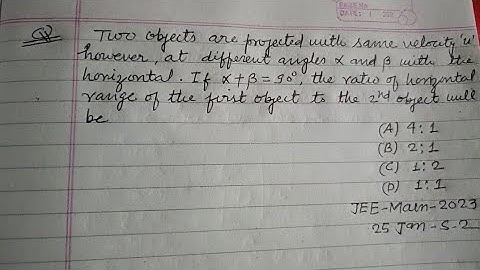 Q Two objects are projected with same velocity 'u'
however, at different angles α and β with the
horizontal. If α+β=90°, the ratio of horizontal
range of the first object to the 2nd object will
be
(A) 4:1
(B) 2:1
(C) 1:2
(D) 1:1
JEE-Main-2023
25 Jan-S-2